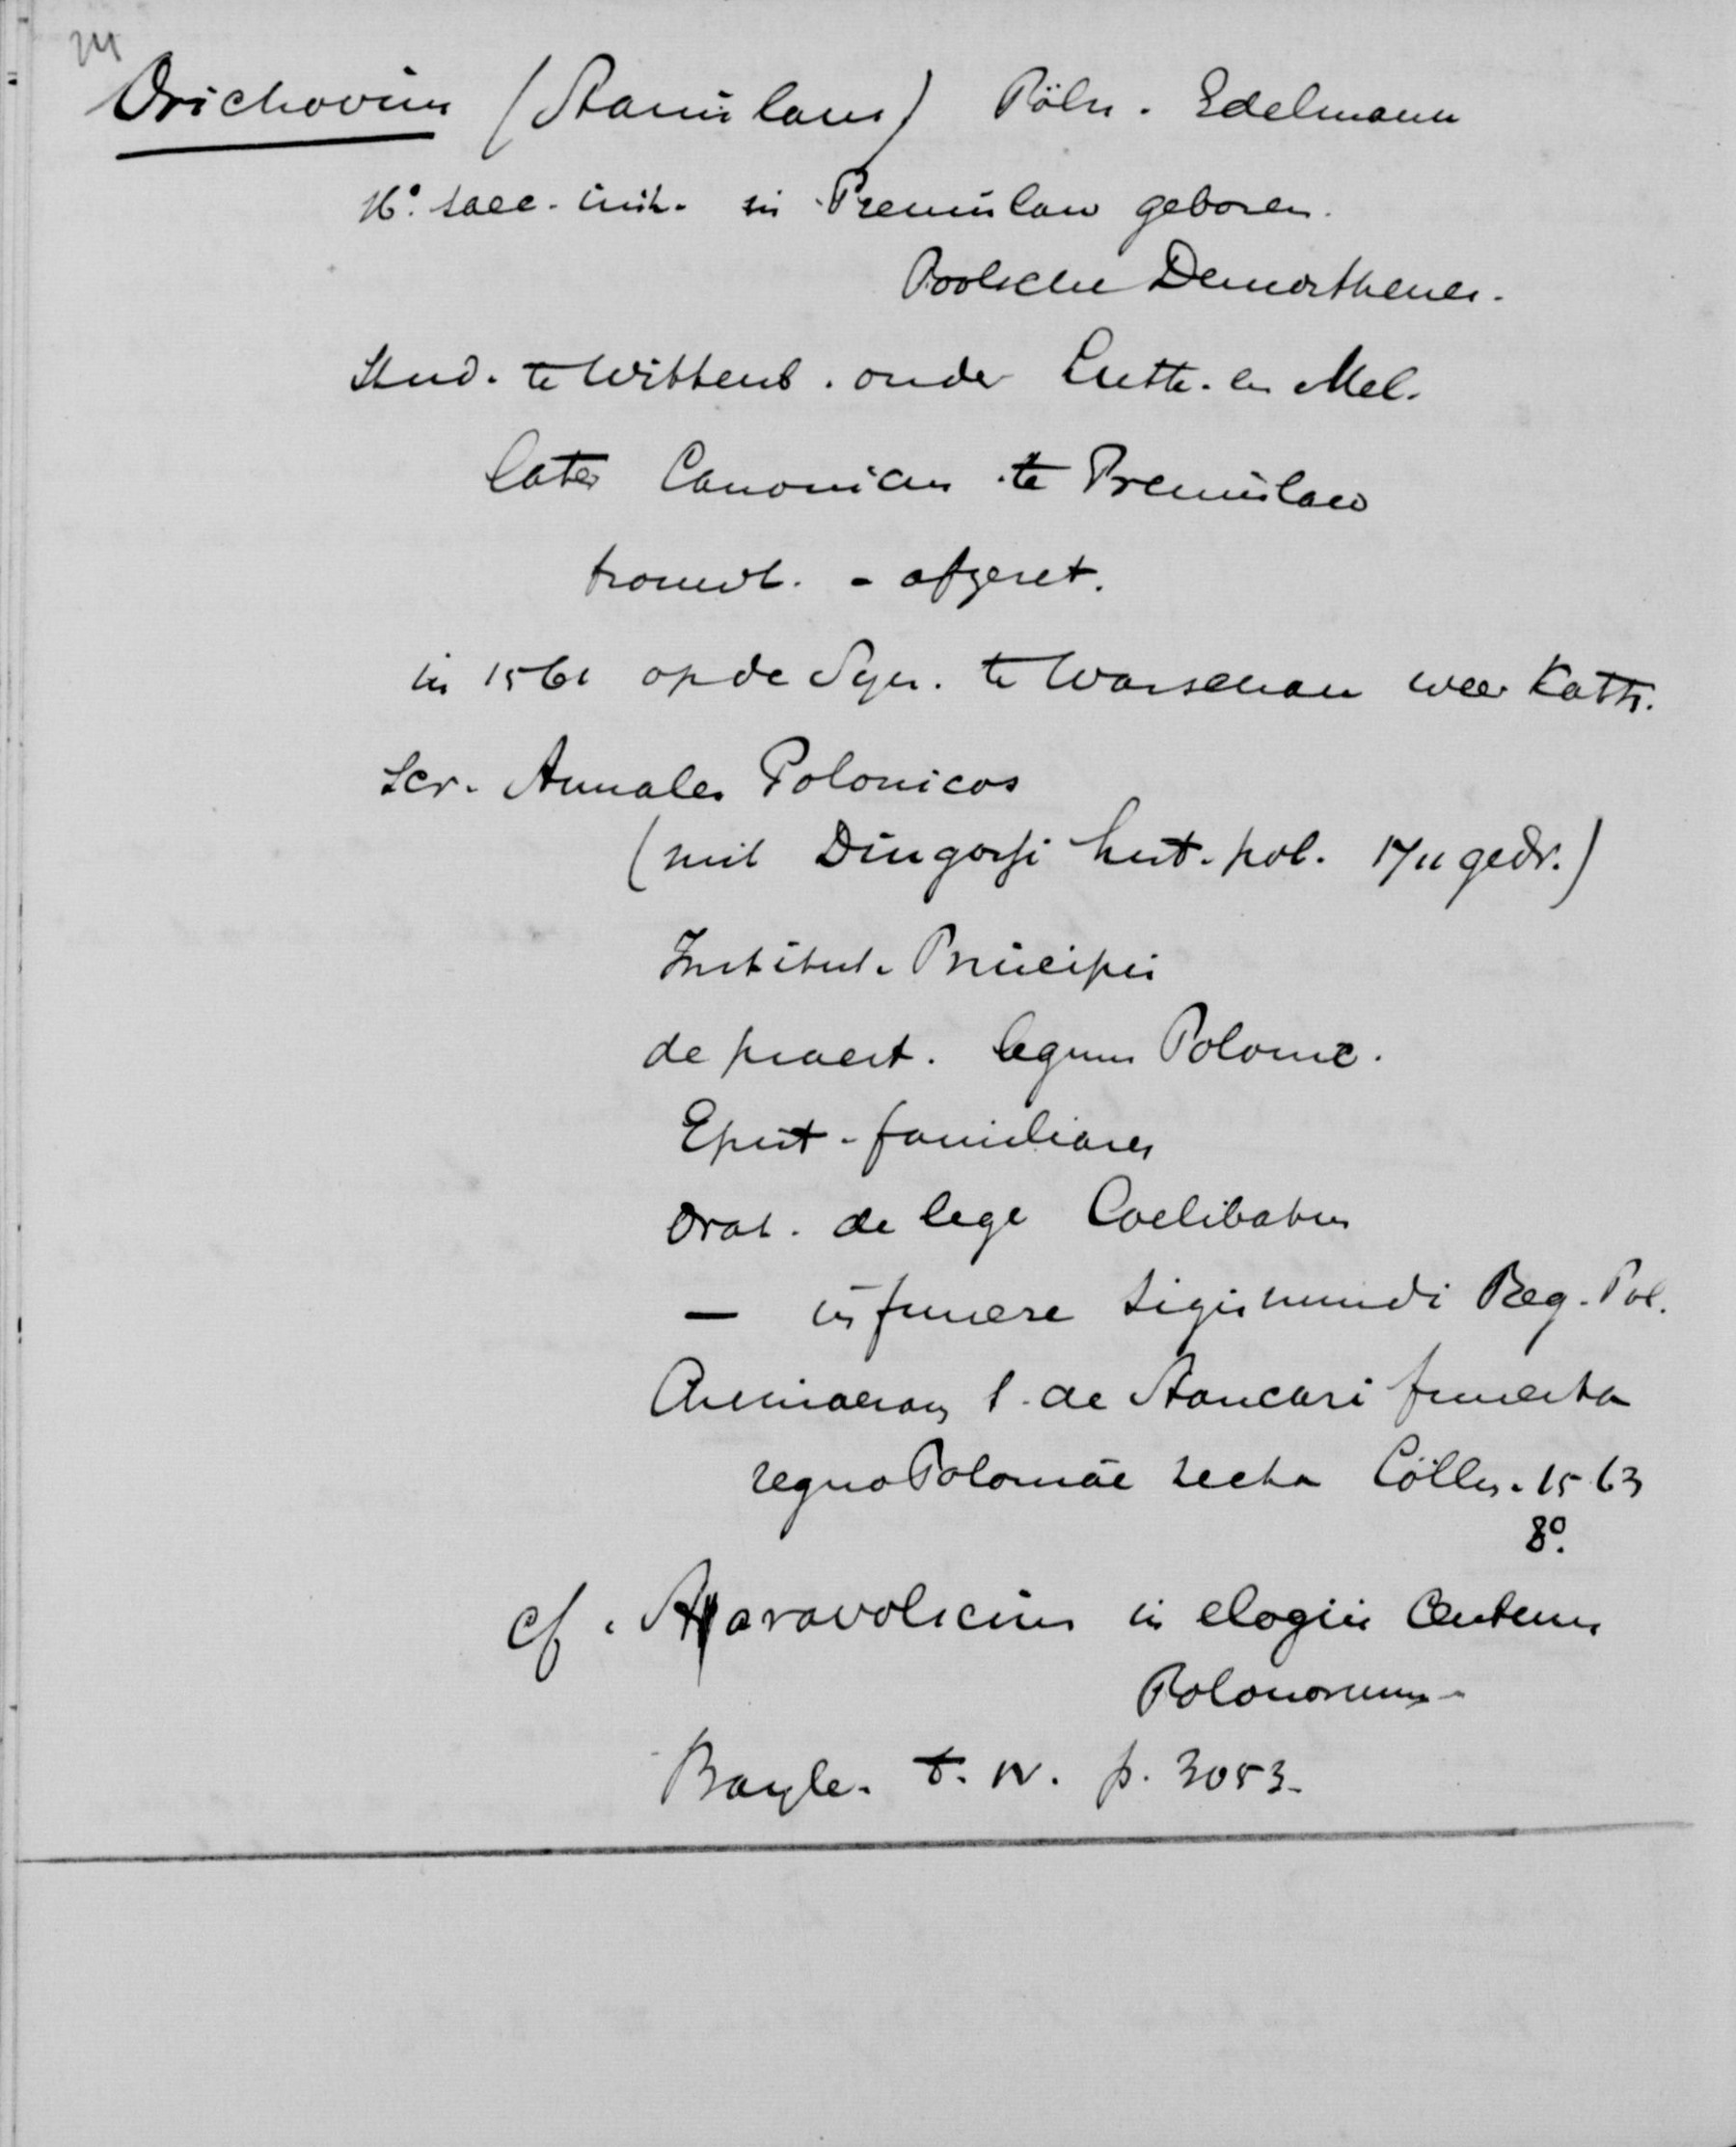 Orichovius (Stanislaus) Pöln. Edelmann
16° saec. init. in Premislaw geboren.
Poolsche Demosthenes.
Stud. te Wittenb. onder Luth. en Mel.
later Canonicus te Premislaw
trouwt. - afgezet.
in 1561 op de Syn. te Warschau weer Kath.
Scr. Annales Polonicos
(mit Dlugossi hist. pol. 1711 gedr.)
Institut. Principis
de praest. legum Polonic.
Epist. familiares
Orat. de lege Coelibatus
— in funere Sigismundi Reg. Pol.
Chimaeram s. de Stancari funesta
regno Poloniae secta Cölln. 1563
8°.
cf. Staravolscius in elogiis Centum
Polonorum
Bayle. t. IV. p. 3053.